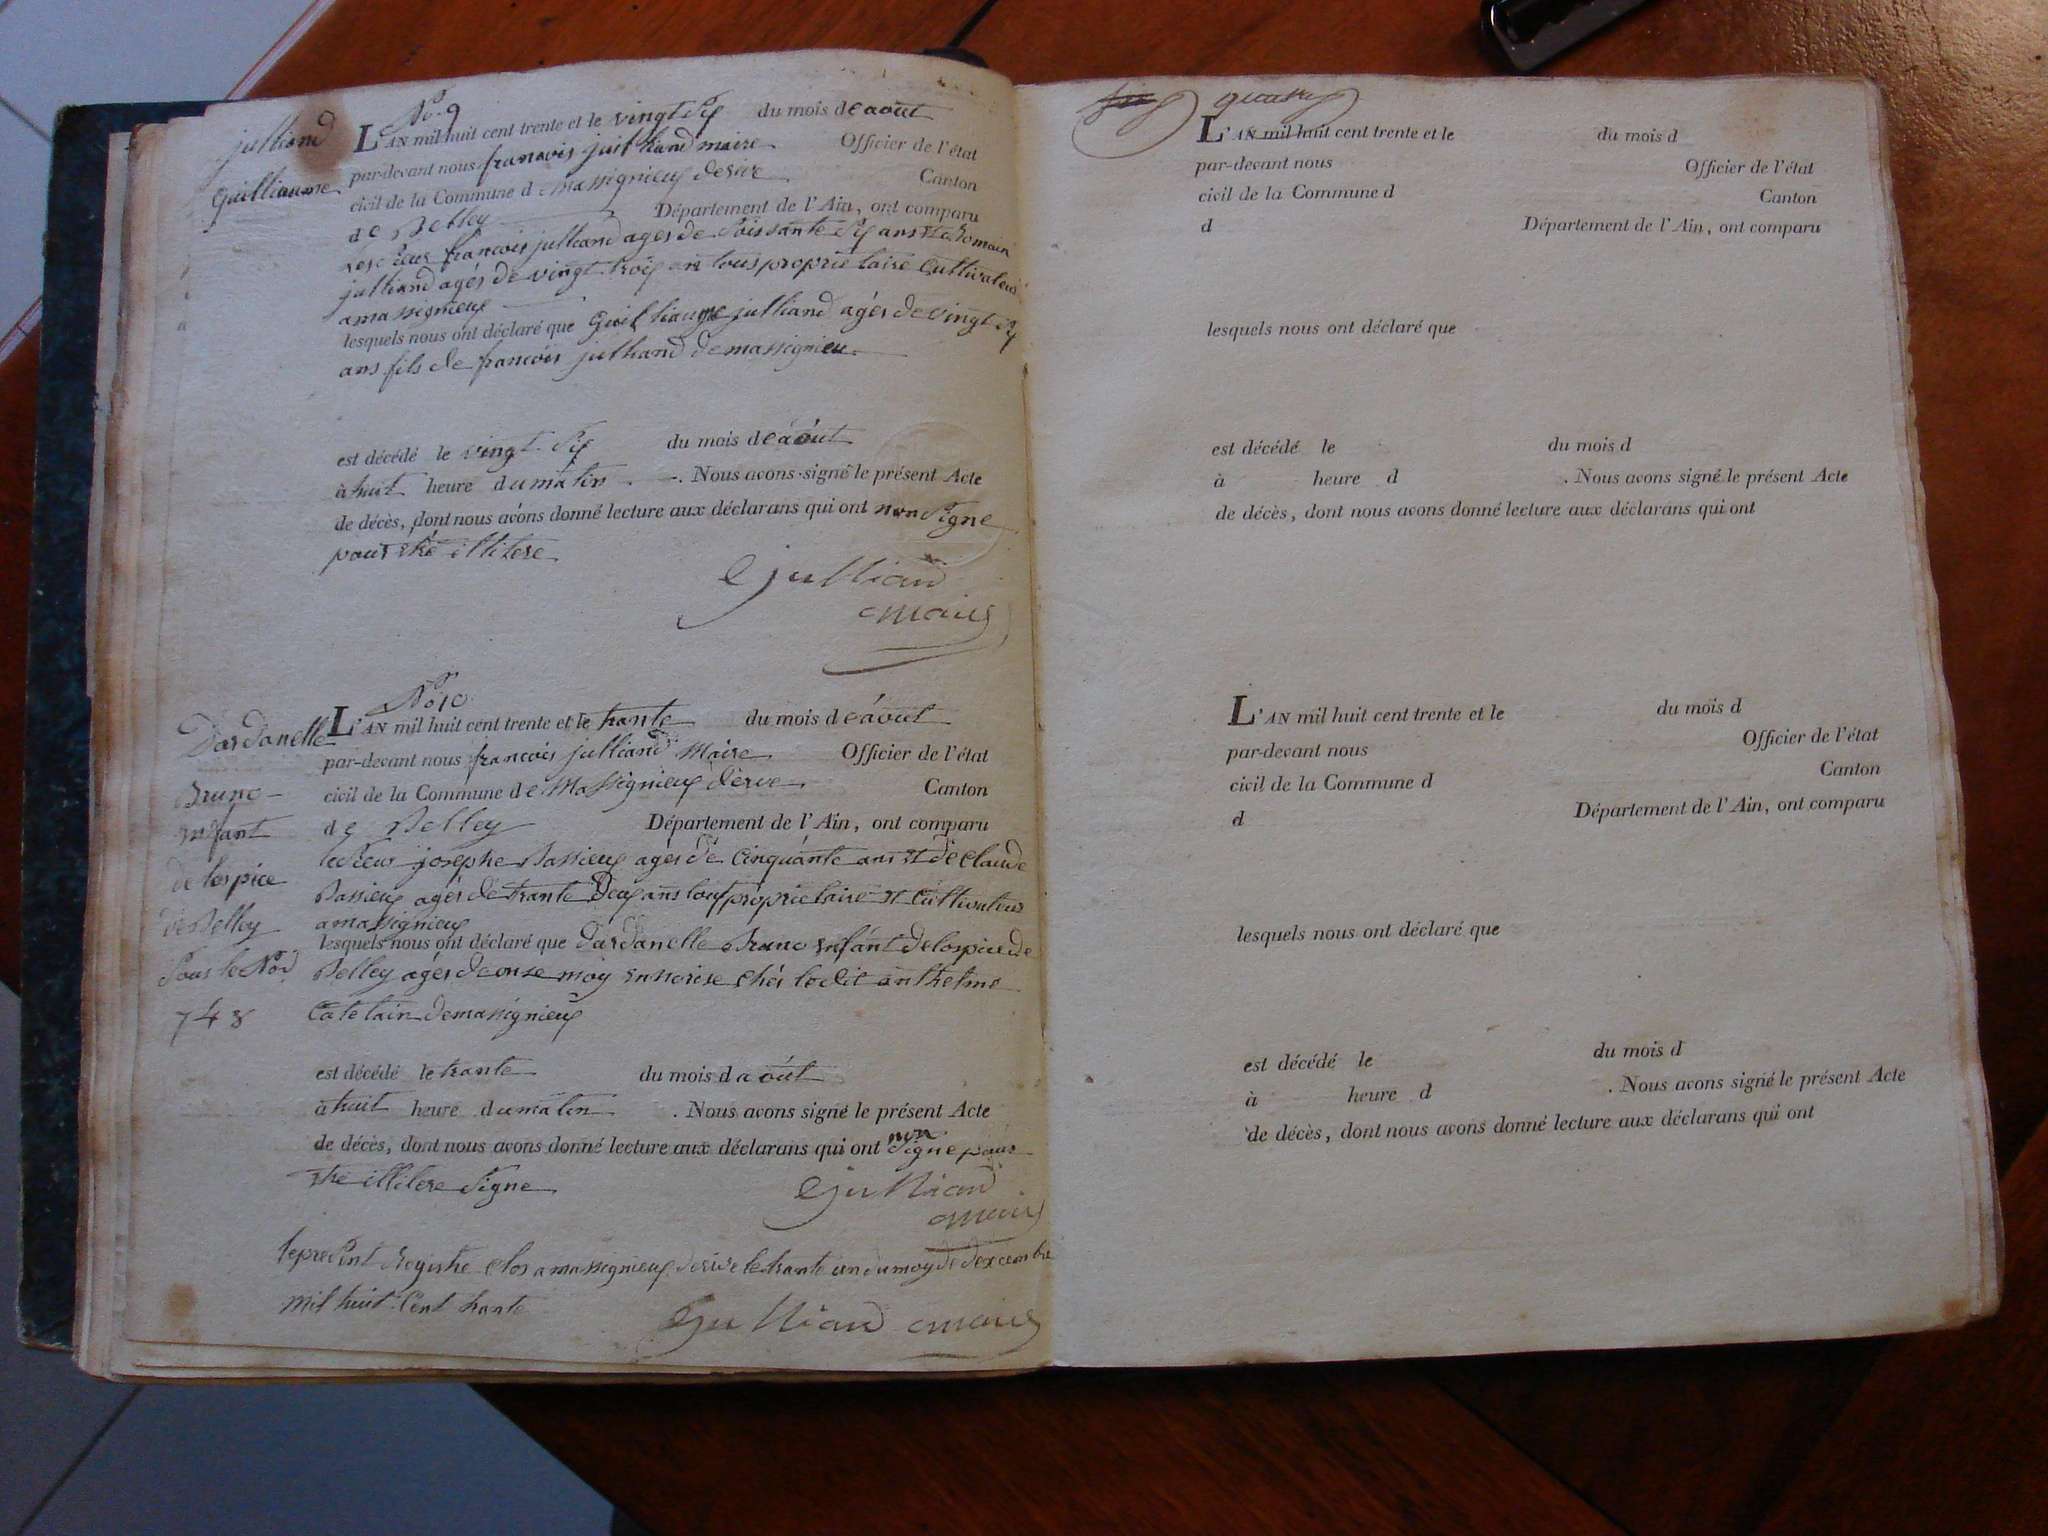 No 9
julliand
Guilliaume
L'AN mil huit cent trente et le vingt Six du mois de aout
par-devant nous francois julliand maire Officier de l'état
civil de la Commune de Massignieux derive Canton
de Belley Département de l'Ain, ont comparu
francois julliand ages de Soissante Six ans et de Romain
julliand agés de vingt trois ans tous proprietaire Cultivateur
a massignieux
lesquels nous ont déclaré que Guilliaume julliand agés de vingt Six
ans fils de francois julliand de massignieu
est décédé le vingt Six du mois de aout
à huit heure du matin . Nous avons signé le présent Acte
de décès, dont nous avons donné lecture aux déclarans qui ont non Signe
pour etre illitere
Julliand
maire
No 10
Dardanelle
Bruno
enfant
de lospice
de Belley
Sous le No
748
L'AN mil huit cent trente et le trante du mois de aout
par-devant nous francois julliand Maire Officier de l'état
civil de la Commune de Massignieux derive Canton
de Belley Département de l'Ain, ont comparu
josephe Bassieux agés de Cinquante ans et de Claude
Bassieux agés de trante Deux ans tout proprietaire et Cultivateur
a massignieux
lesquels nous ont déclaré que Dardanelle Bruno enfant de lospice de
Belley agés de onse moy en norise chés ledit anthelme
Catelain de massignieux
est décédé le trante du mois d aout
à huit heure du matin . Nous avons signé le présent Acte
de décès, dont nous avons donné lecture aux déclarans qui ont non Signe pour
etre illitere Signe
Julliand
maire
le present Registre clos a massignieux derive le trante un du moy de dexcembre
mil huit Cent trante
Julliand maire
quatre
L'AN mil huit cent trente et le du mois d
par-devant nous Officier de l'état
civil de la Commune d Canton
d Département de l'Ain, ont comparu
lesquels nous ont déclaré que
est décédé le du mois d
à heure d . Nous avons signé le présent Acte
de décès, dont nous avons donné lecture aux déclarans qui ont
L'AN mil huit cent trente et le du mois d
par-devant nous Officier de l'état
civil de la Commune d Canton
d Département de l'Ain, ont comparu
lesquels nous ont déclaré que
est décédé le du mois d
à heure d . Nous avons signé le présent Acte
de décès, dont nous avons donné lecture aux déclarans qui ont